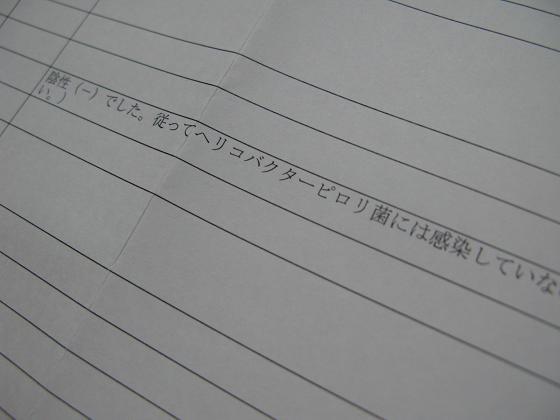 陰性（－）でした。従ってヘリコバクターピロリ菌には感染していな
い。）